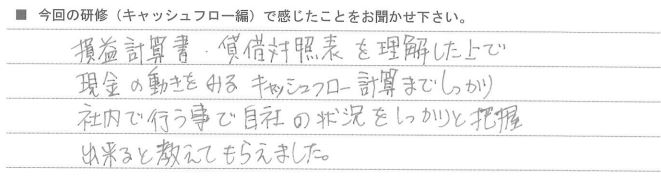 ■ 今回の研修（キャッシュフロー編）で感じたことをお聞かせ下さい。
損益計算書・貸借対照表を理解した上で
現金の動きをみるキャッシュフロー計算までしっかり
社内で行う事で自社の状況をしっかりと把握
出来ると教えてもらえました。